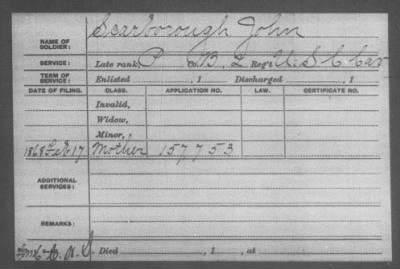 NAME OF SOLDIER: Scarborough John
SERVICE: Late rank, P Co. B, 2 Reg't U.S.C Cav
TERM OF SERVICE: Enlisted , 1 Discharged , 1
DATE OF FILING. CLASS. APPLICATION NO. LAW. CERTIFICATE NO.
Invalid,
Widow,
Minor,
1868 Feb 17 Mother 157,753
ADDITIONAL SERVICES:
REMARKS:
Died , 1 , at